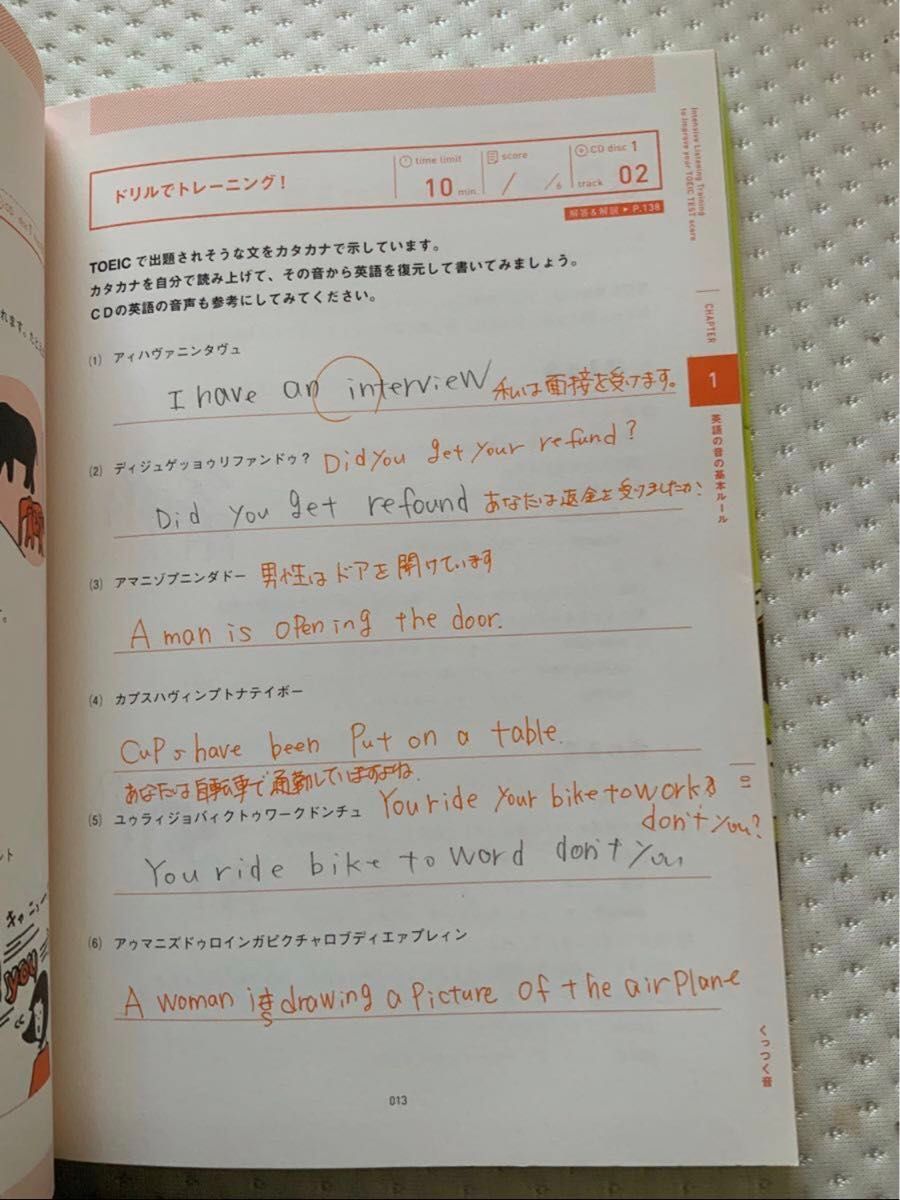 ドリルでトレーニング!
time limit
10 min.
score
/ /6
CD disc 1
track 02
解答&解説 ▶ P.138
TOEICで出題されそうな文をカタカナで示しています。
カタカナを自分で読み上げて、その音から英語を復元して書いてみましょう。
CDの英語の音声も参考にしてみてください。
(1) アィハヴァニンタヴュ
I have an interview 私は面接を受けます。
(2) ディジュゲッョゥリファンドゥ? Did you get your refund?
Did you get refound あなたは返金を受けましたか?
(3) アマニゾプニンダドー 男性はドアを開けています
A man is opening the door.
(4) カプスハヴィンプトナテイボー
Cups have been put on a table.
あなたは自転車で通勤していますよね.
(5) ユゥライジョバィクトゥワークドンチュ You ride your bike to work
don't you?
You ride bike to word don't you
(6) アゥマニズドゥロインガピクチャロブディエァプレィン
A woman is drawing a picture of the airplane
013
Intensive Listening Training
to improve your TOEIC TEST score
CHAPTER
1
英語の音の基本ルール
01
くっつく音
れます。
ント
キャニュー
you